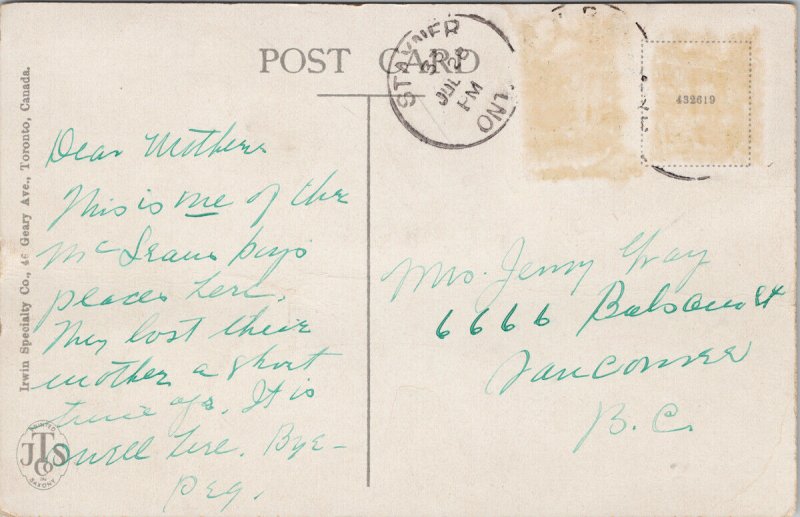 POST CARD
STAYNER
JUL 28
PM
ONT.
432619
Irwin Specialty Co., 46 Geary Ave., Toronto, Canada.
Dear Mother
This is me of the
McLeans boys
places here.
They lost their
mother a short
time ago. It is
swell here. Bye-
Peg.
Mrs. Jenny Gray
6666 Balsam St
Vancouver
B.C.
PRINTED
JTS
Co
IN
SAXONY